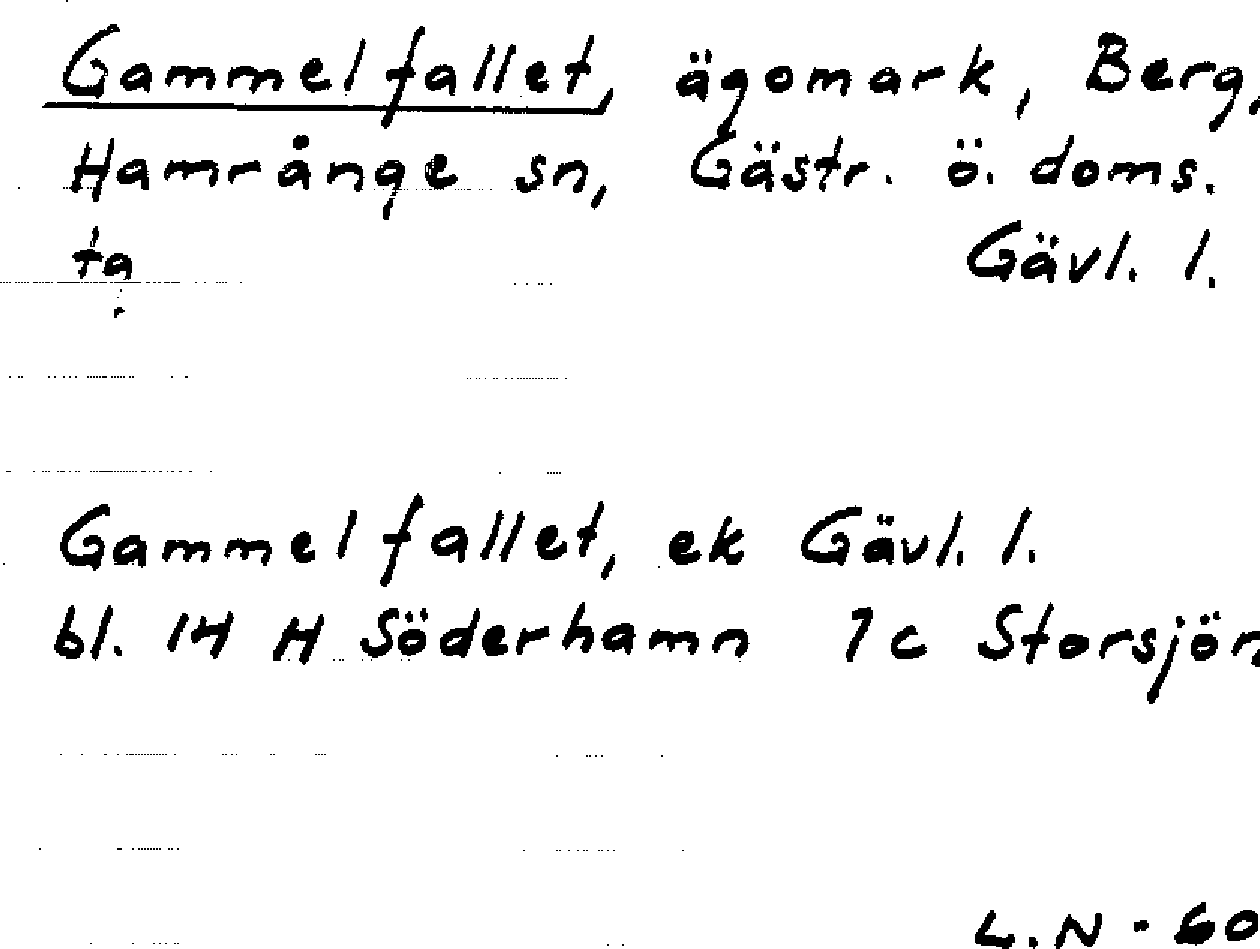 Gammelfallet, ägomark, Berg,
Hamrånge sn, Gästr. ö. doms.
ta Gävl. l.
Gammelfallet, ek Gävl. l.
bl. 14 H Söderhamn 7c Storsjön
L.N - 60